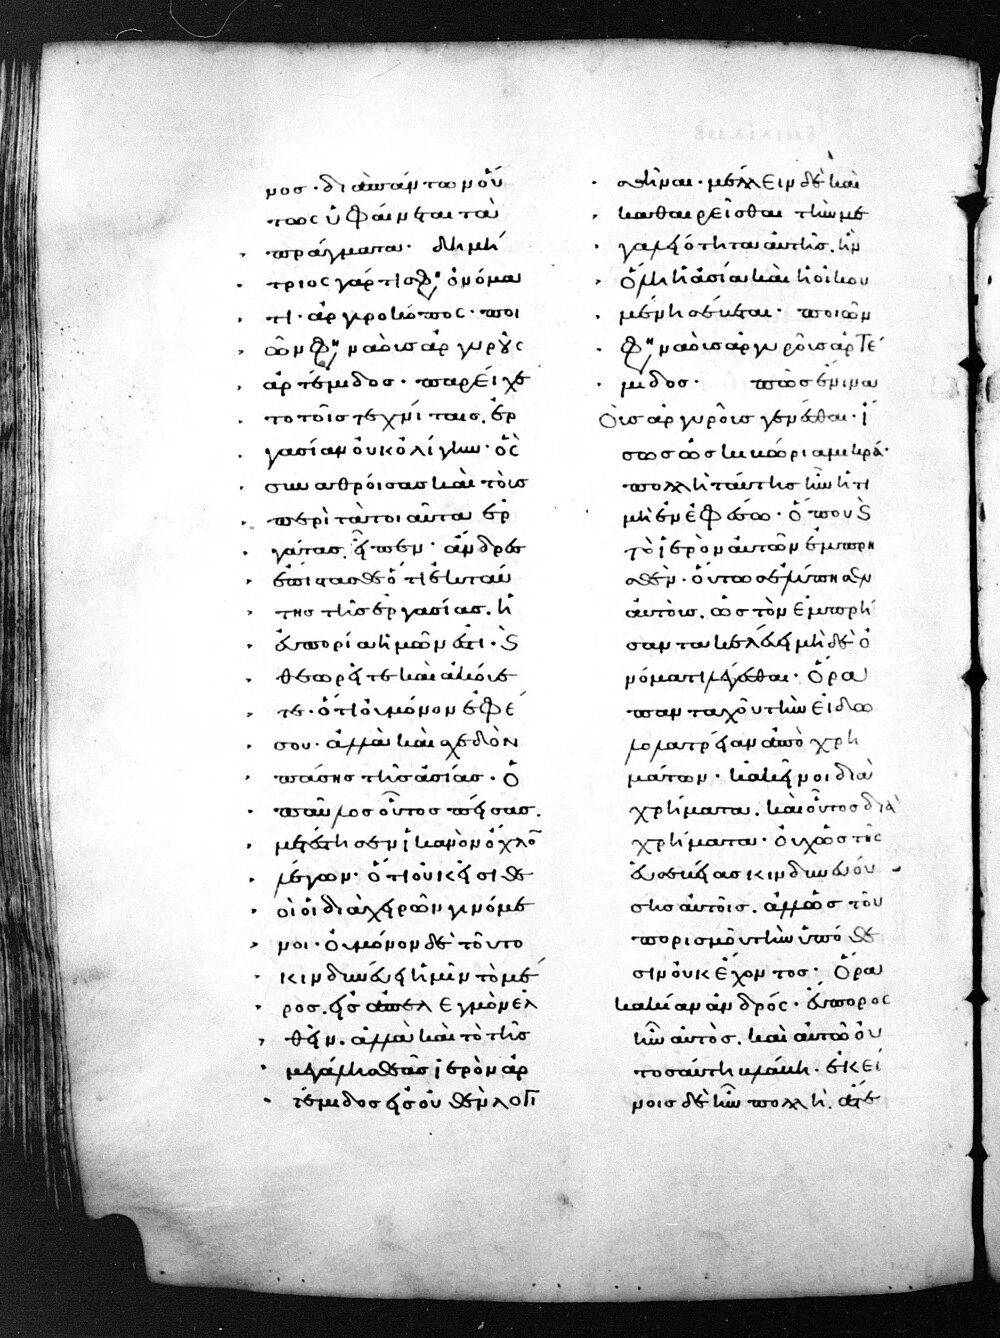 μος· διαπάντων οὐ
τως ὑφαίνεται τὰ
πράγματα· δημή
τριος γάρ τίς φησιν ὀνόμα
τι· ἀργυροκόπος· ποι
ῶν φησιν ναοὺς ἀργυροῦς
ἀρτέμιδος· παρείχε
το τοῖς τεχνίταις. ἐρ
γασίαν οὐκ ὀλίγην· οὓς
συναθροίσας καὶ τοὺς
περὶ τὰ τοιαῦτα ἐρ
γάτας. εἶπεν· ἄνδρες
ἐπίστασθε ὅτι ἐκ ταύ
της τῆς ἐργασίας. ἡ
εὐπορία ἡμῶν ἐστι· καὶ
θεωρεῖτε καὶ ἀκούε
τε· ὅτι οὐ μόνον ἐφέ
σου· ἀλλὰ καὶ σχεδὸν
πάσης τῆς ἀσίας· ὁ
παῦλος οὗτος πείσας.
μετέστησεν ἱκανὸν ὄχλον
λέγων· ὅτι οὐκ εἰσὶ θε
οὶ οἱ διὰ χειρῶν γινόμε
νοι· οὐ μόνον δὲ τοῦτο
κινδυνεύει ἡμῖν τὸ μέ
ρος. εἰς ἀπελεγμὸν ἐλ
θεῖν. ἀλλὰ καὶ τὸ τῆς
μεγάλης θεᾶς ἱερὸν ἀρ
τέμιδος εἰς οὐθὲν λογι
σθῆναι· μέλλειν δὲ καὶ
καθαιρεῖσθαι τὴν με
γαλειότητα αὐτῆς. ἣν
ὅλη ἡ ἀσία καὶ ἡ οἰκου
μένη σέβεται· ποιῶν
φησιν ναοὺς ἀργυροῦς ἀρτέ
μιδος· πῶς ἔνι να
οὺς ἀργυροῦς γενέσθαι· ἴ
σως ὡς κιβώρια μικρά·
πολλὴ ταύτης ἦν ἡ τι
μὴ ἐν ἐφέσω· ὅπου καὶ
τὸ ἱερὸν αὐτῶν ἐμπρη
σθὲν· οὕτως ἐλύπησεν
αὐτοὺς. ὡς τὸν ἐμπρή
σαντα κελεῦσαι μὴ δὲ ὀ
νόματι λέγεσθαι· ὅρα
πανταχοῦ τὴν εἰδω
λολατρείαν ἀπὸ χρη
μάτων· κἀκεῖνοι διὰ
χρήματα. καὶ οὗτος διὰ
χρήματα· οὐχ ὡς τῆς
εὐσεβείας κινδυνευού
σης αὐτοῖς. ἀλλ' ὡς τοῦ
πορισμοῦ τὴν ὑπόθε
σιν οὐκ ἔχοντος· ὅρα
κακίαν ἀνδρός· εὔπορος
ἦν αὐτὸς. καὶ αὐτῶ οὐ
τοσαύτη βλάβη· ἐκεί
νοις δὲ ἦν πολλὴ. ἅτε